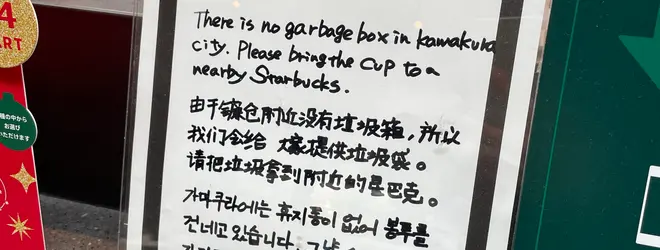 4
ART
種の中から
お選び
いただけます
There is no garbage box in kamakura
city. Please bring the cup to a
nearby Starbucks.
由于镰仓附近没有垃圾箱，所以
我们会给 大家提供垃圾袋。
请把垃圾拿到附近的星巴克。
가마쿠라에는 휴지통이 없어 봉투를
건네고 있습니다. 그냥